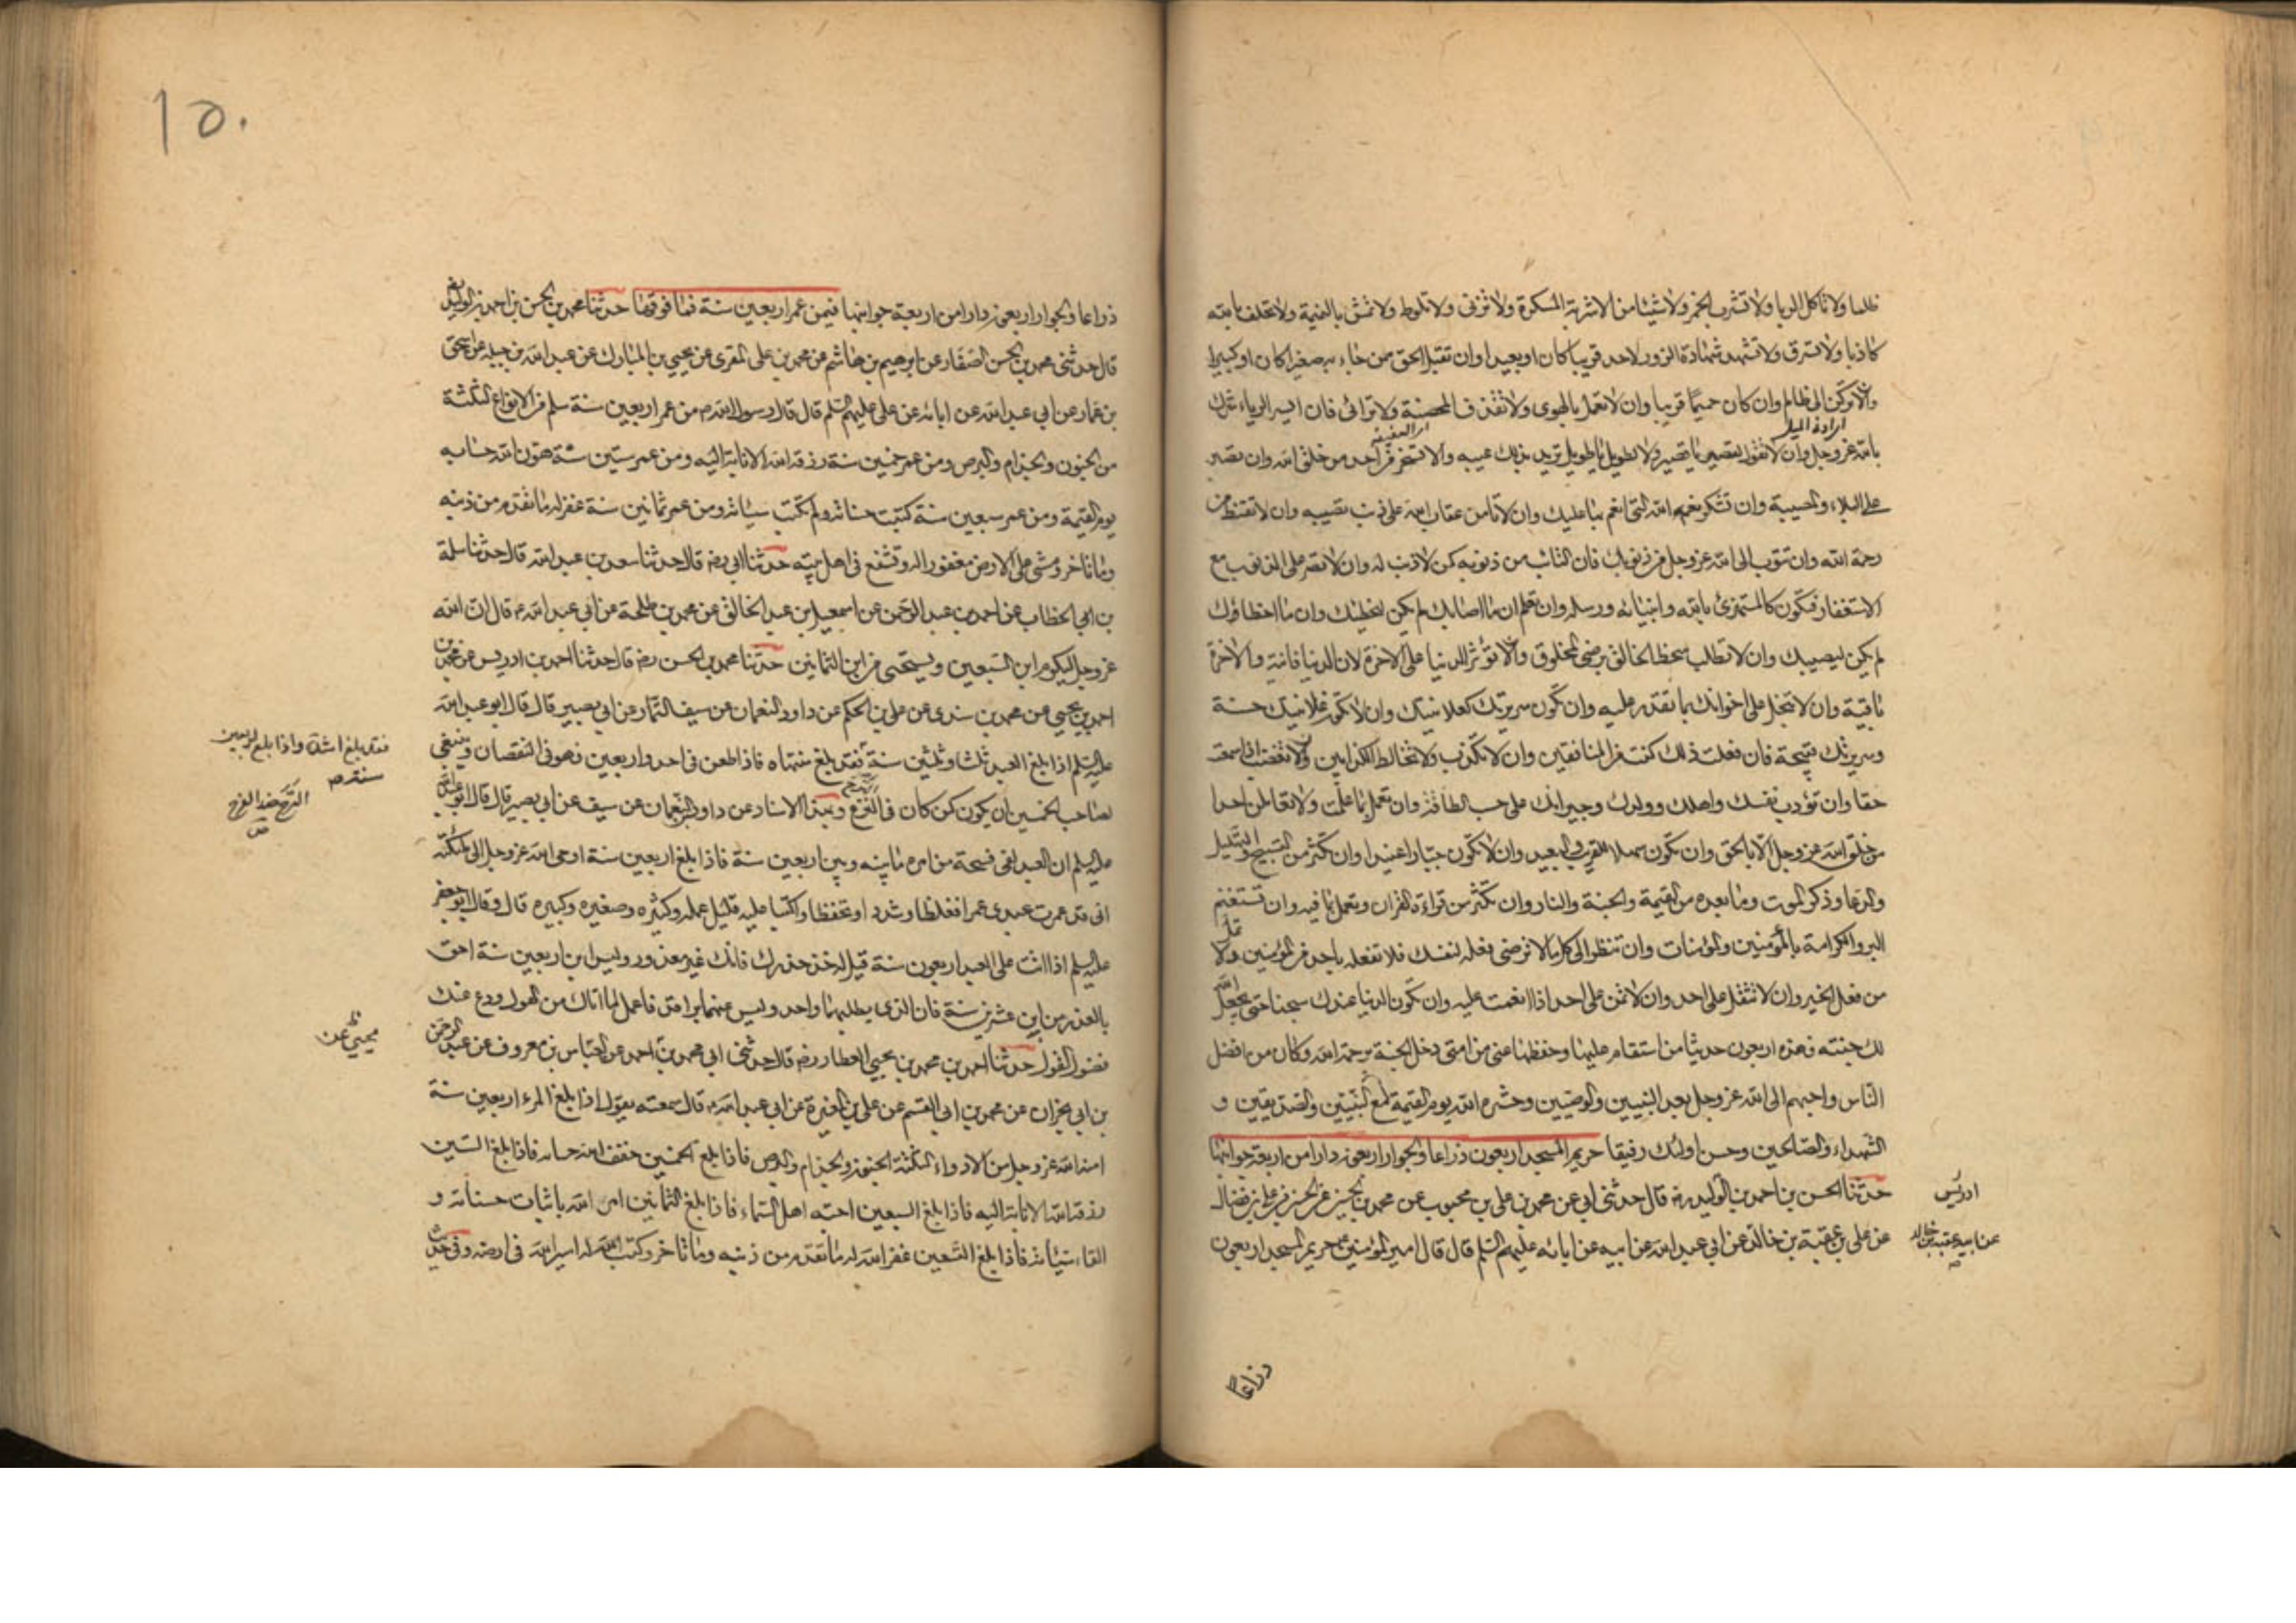 ظلما ولا تاكل الربا ولا تشرب الخمر ولا شيئا من الاشربة المسكرة ولا تزنى ولا تلوط ولا تمشى بالنميمة ولا تحلف بالله
كاذبا ولا تسرق ولا تشهد شهادة الزور لاحد قريبا كان او بعيدا وان تقبل الحق ممن جاء به صغيرا كان او كبيرا
وان لا تركن الى ظالم وان كان حميما قريبا وان لا تعمل بالهوى ولا تقذف المحصنة ولا ترائى فان ايسر الرياء شرك
بالله عز وجل وان لا تقول لقصير يا قصير ولا لطويل يا طويل تريد بذلك عيبه وان لا تسخر من احد من خلق الله وان تصبر
على البلاء والمصيبة وان تشكر نعم الله التى انعم بها عليك وان لا تامن عقاب الله على ذنب تصيبه وان لا تقنط من
رحمة الله وان تتوب الى الله عز وجل من ذنوبك فان التائب من ذنوبه كمن لا ذنب له وان لا تصر على الذنوب مع
الاستغفار فتكون كالمستهزئ بالله وانبيائه ورسله وان تعلم ان ما اصابك لم يكن ليخطئك وان ما اخطاؤك
لم يكن ليصيبك وان لا تطلب سخط الخالق برضى المخلوق وان لا تؤثر الدنيا على الاخرة لان الدنيا فانية والاخرة
باقية وان لا تبخل على اخوانك بما تقدر عليه وان تكون سريرتك كعلانيتك وان لا تكون علانيتك حسنة
وسريرتك قبيحة فان فعلت ذلك كنت من المنافقين وان لا تكذب ولا تخالط الكذابين ولا تغضب اذا سمعت
حقا وان تؤدب نفسك واهلك وولدك وجيرانك على حسب الطاقة وان تعمل بما علمت ولا تعاملن احدا
من خلق الله عز وجل الا بالحق وان تكون سهلا للقريب والبعيد وان لا تكون جبارا عنيدا وان تكثر من التسبيح والتهليل
والدعا وذكر الموت وما بعده من القيمة والجنة والنار وان تكثر من قراءة القران وتعمل بما فيه وان تستغنم
البر والكرامة بالمؤمنين والمؤمنات وان تنظر الى كل ما لا ترضى فعله لنفسك فلا تفعله باحد من المؤمنين ولا تمل
من فعل الخير وان لا تثقل على احد وان لا تمن على احد اذا انعمت عليه وان تكون الدنيا عندك سجنا حتى يجعل الله
لك جنته فهذه اربعون حديثا من استقام عليها وحفظها عنى من امتى دخل الجنة برحمة الله وكان من افضل
الناس واحبهم الى الله عز وجل بعد النبيين والوصيين وحشره الله يوم القيمة مع النبيين والصديقين و
الشهداء والصالحين وحسن اولئك رفيقا حريم المسجد اربعون ذراعا والجوار اربعون دارا من اربعة جوانبها
حدثنا الحسن بن احمد بن الوليد ره قال حدثنى ابى عن محمد بن على بن محبوب عن محمد بن الحسين عن الحسن بن على بن فضال
عن على بن عقبة بن خالد عن ابي عبد الله عن ابيه عن ابائه عليهم السلم قال قال امير المؤمنين ع حريم المسجد اربعون
ادريس
عن ابيه عقبة بن خالد
ذراعا
١٥٠
ذراعا والجوار اربعون دارا من اربعة جوانبها فيمن عمر اربعين سنة فما فوقها حدثنا محمد بن الحسن بن احمد بن الوليد
قال حدثنى محمد بن الحسن الصفار عن ابرهيم بن هاشم عن محمد بن على المقرى عن يحيى بن المبارك عن عبد الله بن جبلة عن اسحق
بن عمار عن ابي عبد الله عن ابائه عن على عليهم السلم قال قال رسول الله ص من عمر اربعين سنة سلم من الانواع الثلثة
من الجنون والجذام والبرص ومن عمر خمسين سنة رزقه الله الانابة اليه ومن عمر ستين سنة هون الله حسابه
يوم القيمة ومن عمر سبعين سنة كتبت حسناته ولم تكتب سيئاته ومن عمر ثمانين سنة غفر له ما تقدم من ذنبه
وما تاخر ومشى على الارض مغفورا له وتشفع فى اهل بيته حدثنا ابي رضه قال حدثنا سعد بن عبد الله قال حدثنا سلمة
بن الخطاب عن احمد بن عبد الرحمن عن اسمعيل بن عبد الخالق عن محمد بن طلحة عن ابي عبد الله ع قال ان الله
عز وجل ليكرم ابن السبعين ويستحيى من ابن الثمانين حدثنا محمد بن الحسن رضه قال حدثنا احمد بن ادريس عن محمد بن
احمد بن يحيى عن محمد بن سندى عن على بن الحكم عن داود النعمان عن سيف التمار عن ابي بصير قال قال ابو عبد الله
عليه السلم اذا بلغ العبد ثلثا وثلثين سنة فقد بلغ منتهاه فاذا طعن فى احد واربعين فهو فى النقصان وينبغى
لصاحب الخمسين ان يكون كمن كان فى النزع وبهذا الاسناد عن داود النعمان عن سيف عن ابي بصير قال قال ابو عبد الله
عليه السلم ان العبد لفى فسحة من امره ما بينه وبين اربعين سنة فاذا بلغ اربعين سنة اوحى الله عز وجل الى ملئكته
انى قد عمرت عبدى عمرا فغلظا وشددا وتحفظا واكتبا عليه قليل عمله وكثيره وصغيره وكبيره قال وقال ابو جعفر
عليه السلم اذا اتت على العبد اربعون سنة قيل له خذ حذرك فانك غير معذور وليس ابن اربعين سنة احق
بالعذر من ابن عشرين سنة فان الذى يطلبهما واحد وليس عنهما براقد فاعمل لما امامك من الهول ودع عنك
فضول القول حدثنا احمد بن محمد بن يحيى العطار رضه قال حدثنى ابى محمد بن احمد عن العباس بن معروف عن عبد الرحمن
بن ابى نجران عن محمد بن ابى القسم عن على بن المغيرة عن ابي عبد الله ع قال سمعته يقول اذا بلغ المرء اربعين سنة
امنه الله عز وجل من الادواء الثلثة الجنون والجذام والبرص فاذا بلغ الخمسين خفف الله حسابه فاذا بلغ الستين
رزقه الله الانابة اليه فاذا بلغ السبعين احبه اهل السماء فاذا بلغ الثمانين امر الله باثبات حسناته و
القاء سيئاته فاذا بلغ التسعين غفر الله له ما تقدم من ذنبه وما تاخر وكتب له اسير الله فى ارضه وفى حديث
فقد بلغ اشده واذا بلغ اربعين
سنة
الترح ضد الفرح
يحيى عن